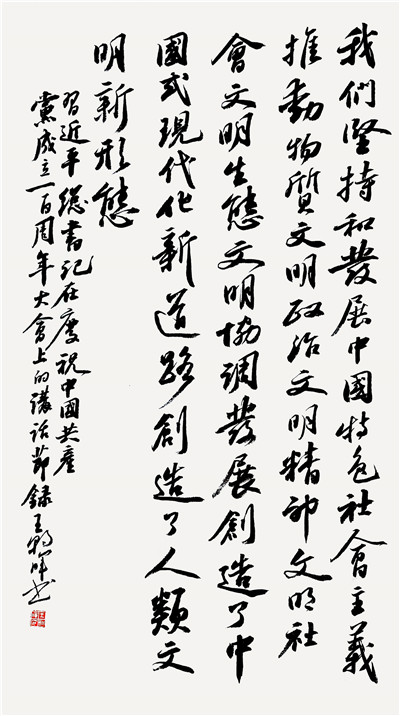 我們堅持和發展中國特色社會主義
推動物質文明政治文明精神文明社
會文明生態文明協調發展創造了中
國式現代化新道路創造了人類文
明新形態
習近平總書記在慶祝中國共產
黨成立一百周年大會上的講話節錄王书